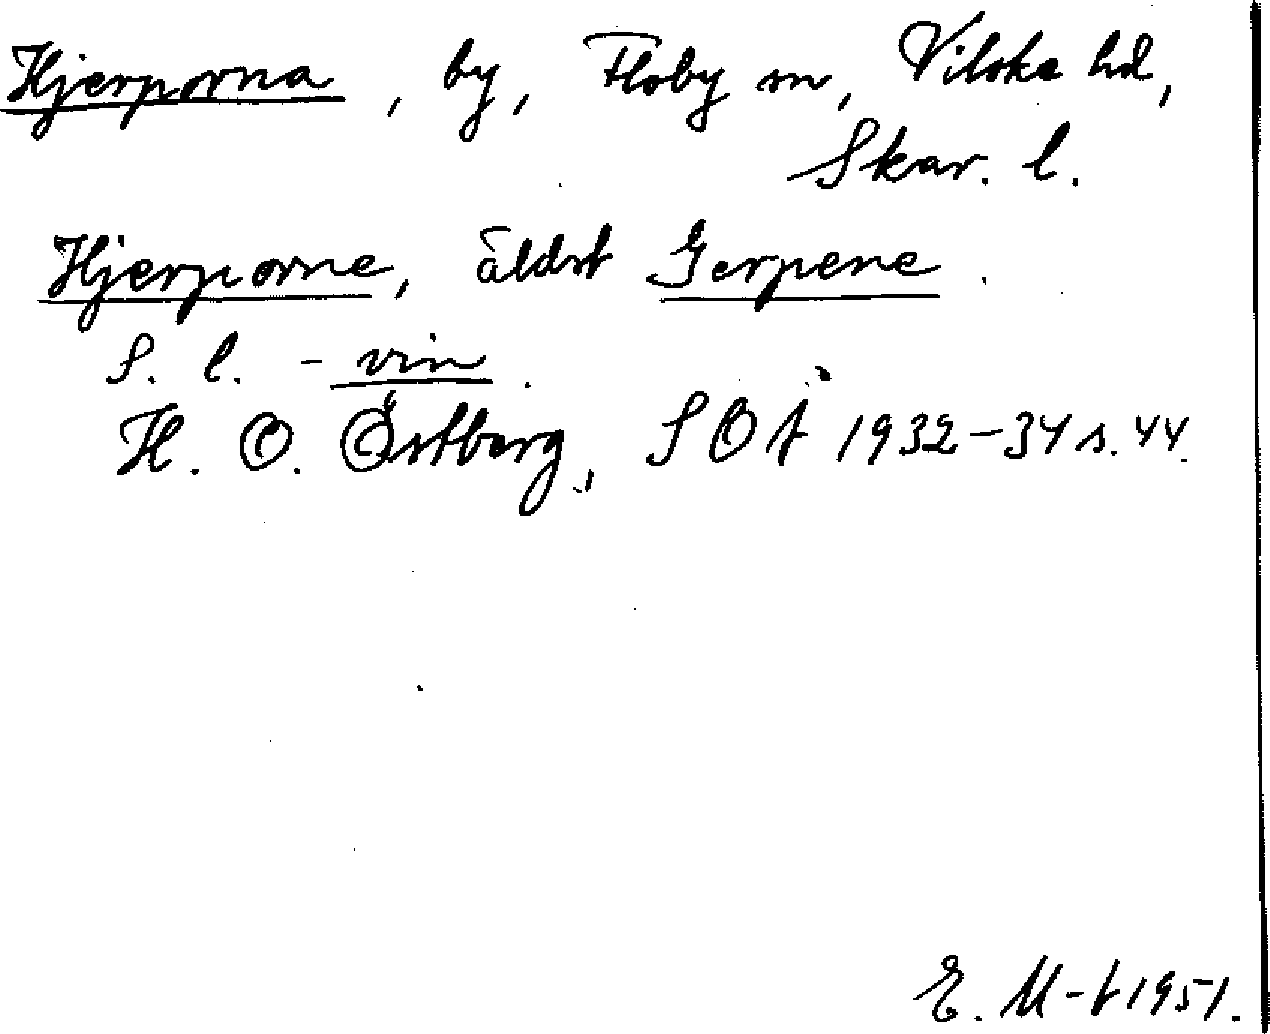 Hjerporna, by, Floby sn, Vilske hd,
Skar. l.
Hjerporne, äldst Gerpene.
S. l. - vin.
H. O. Östberg, SOÅ 1932-34 s. 44.
E. M-t 1951.